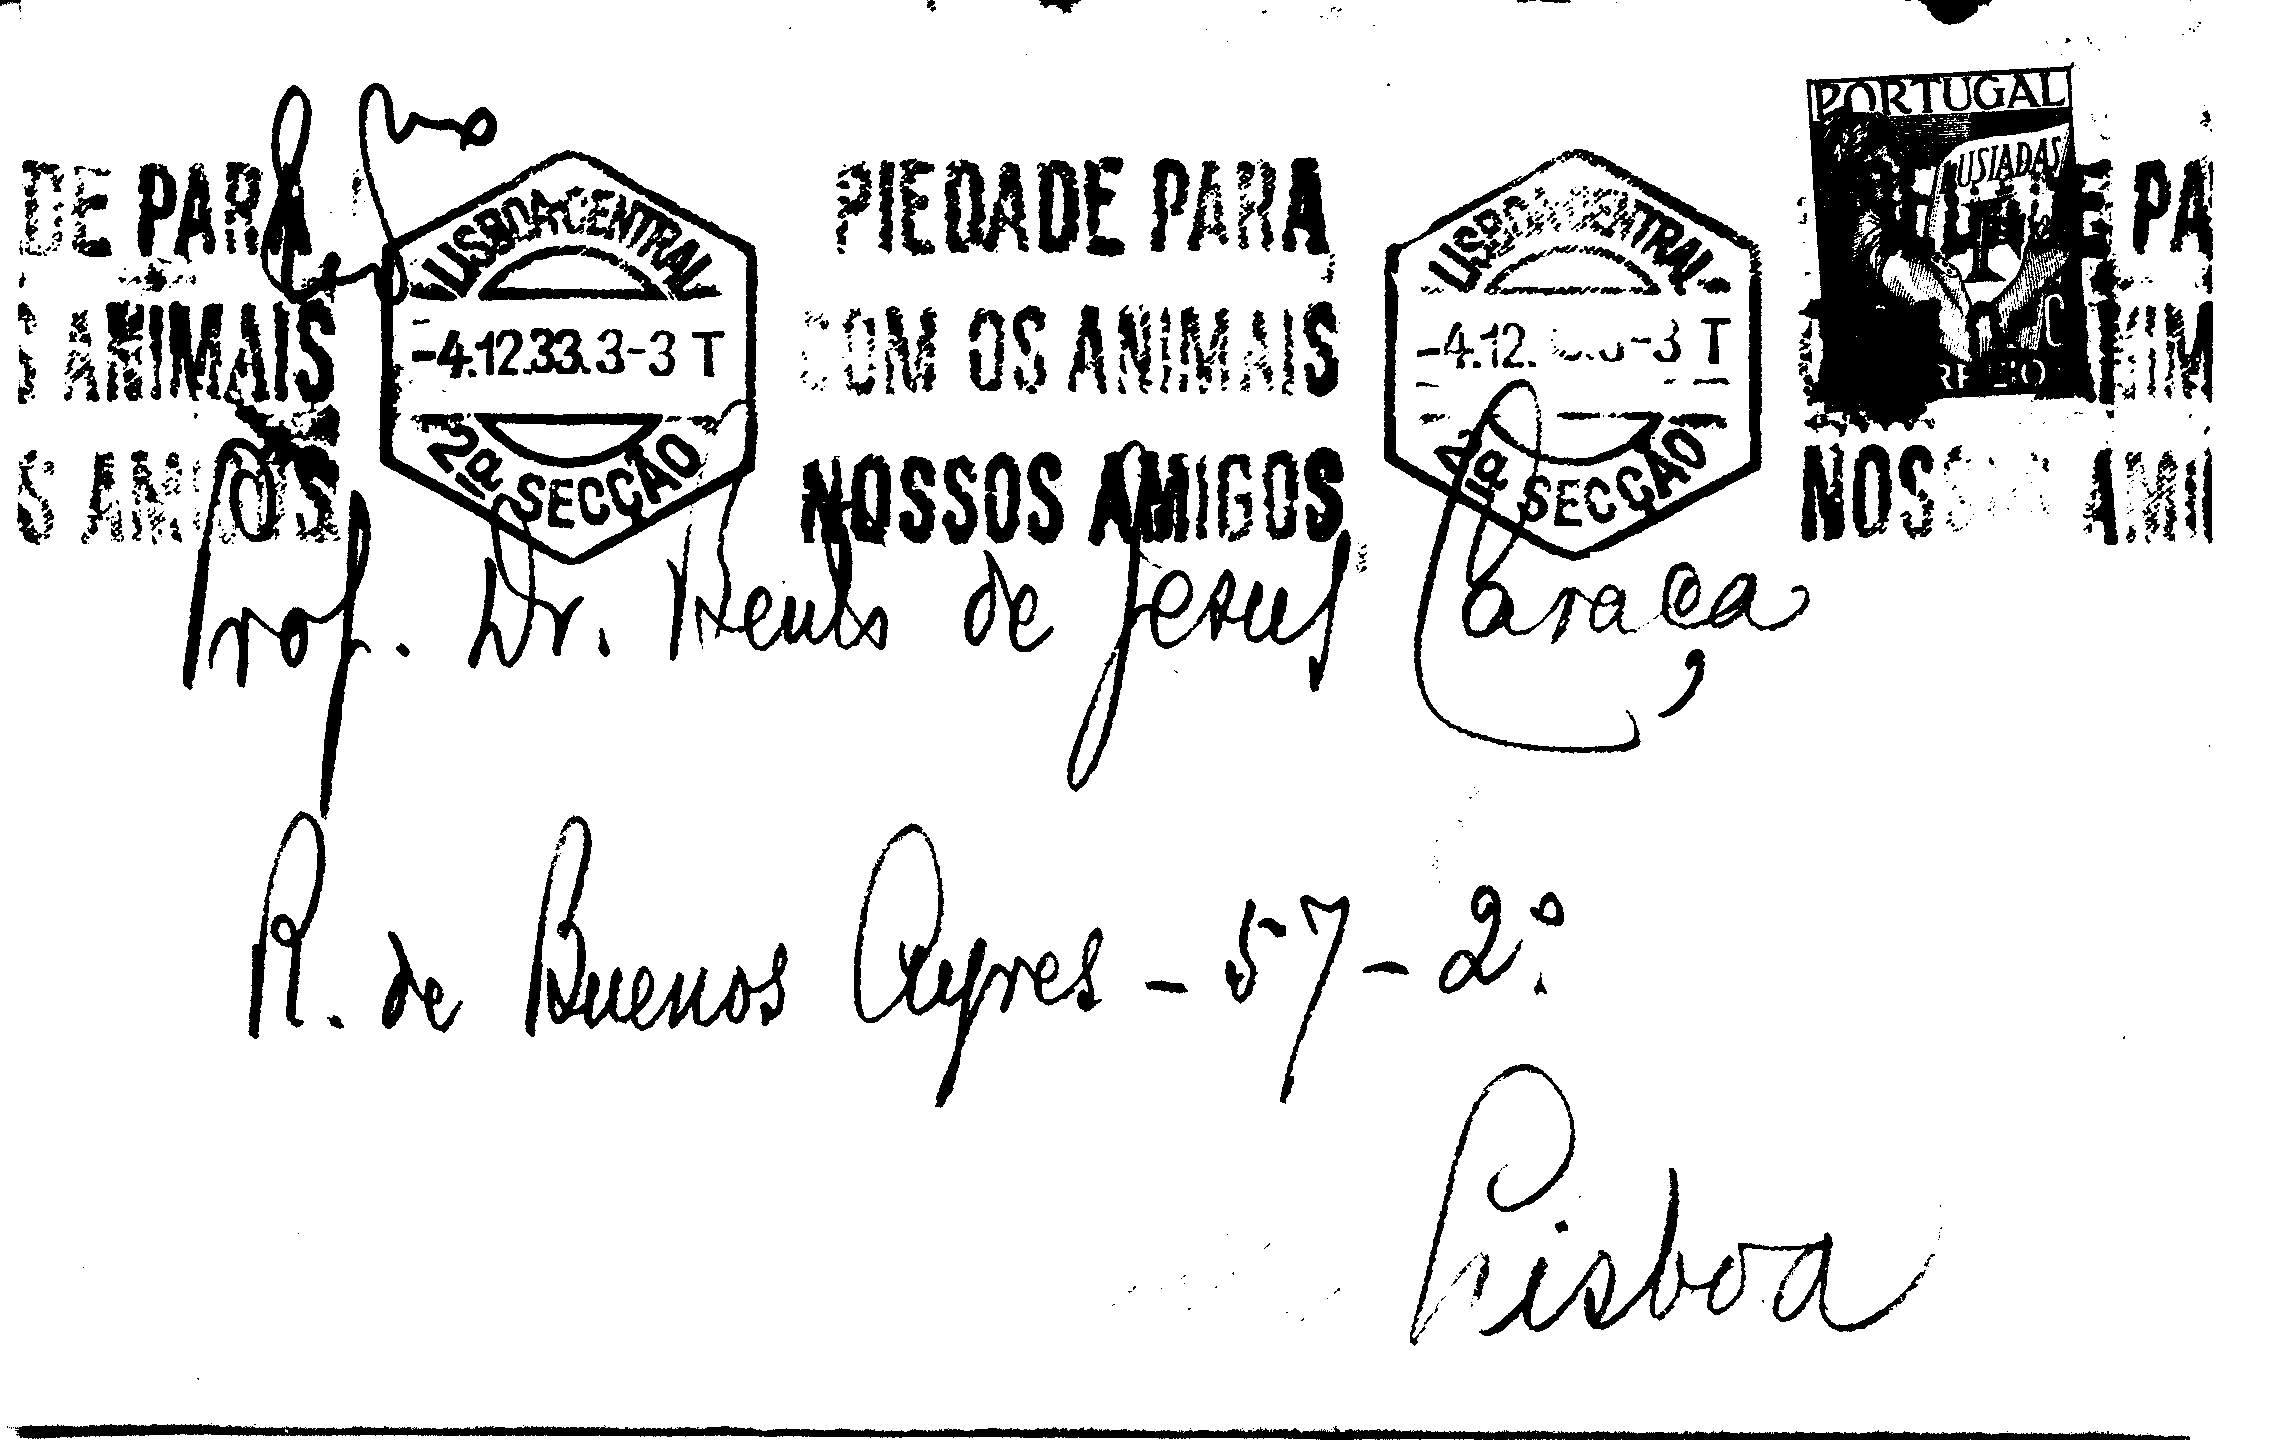 PORTUGAL
LUSIADAS
DE PARA
PIEDADE PARA
PIEDADE PA
LISBOA-CENTRAL
LISBOA CENTRAL
S ANIMAIS
-4.12.33.3-3 T
COM OS ANIMAIS
-4.12. 3-3 T
ANIM
S AMIGOS
2ª SECÇÃO
NOSSOS AMIGOS
2ª SECÇÃO
NOSSOS AMI
Prof. Dr. Bento de Jesus Caraça,
R. de Buenos Ayres - 57 - 2º.
Lisboa